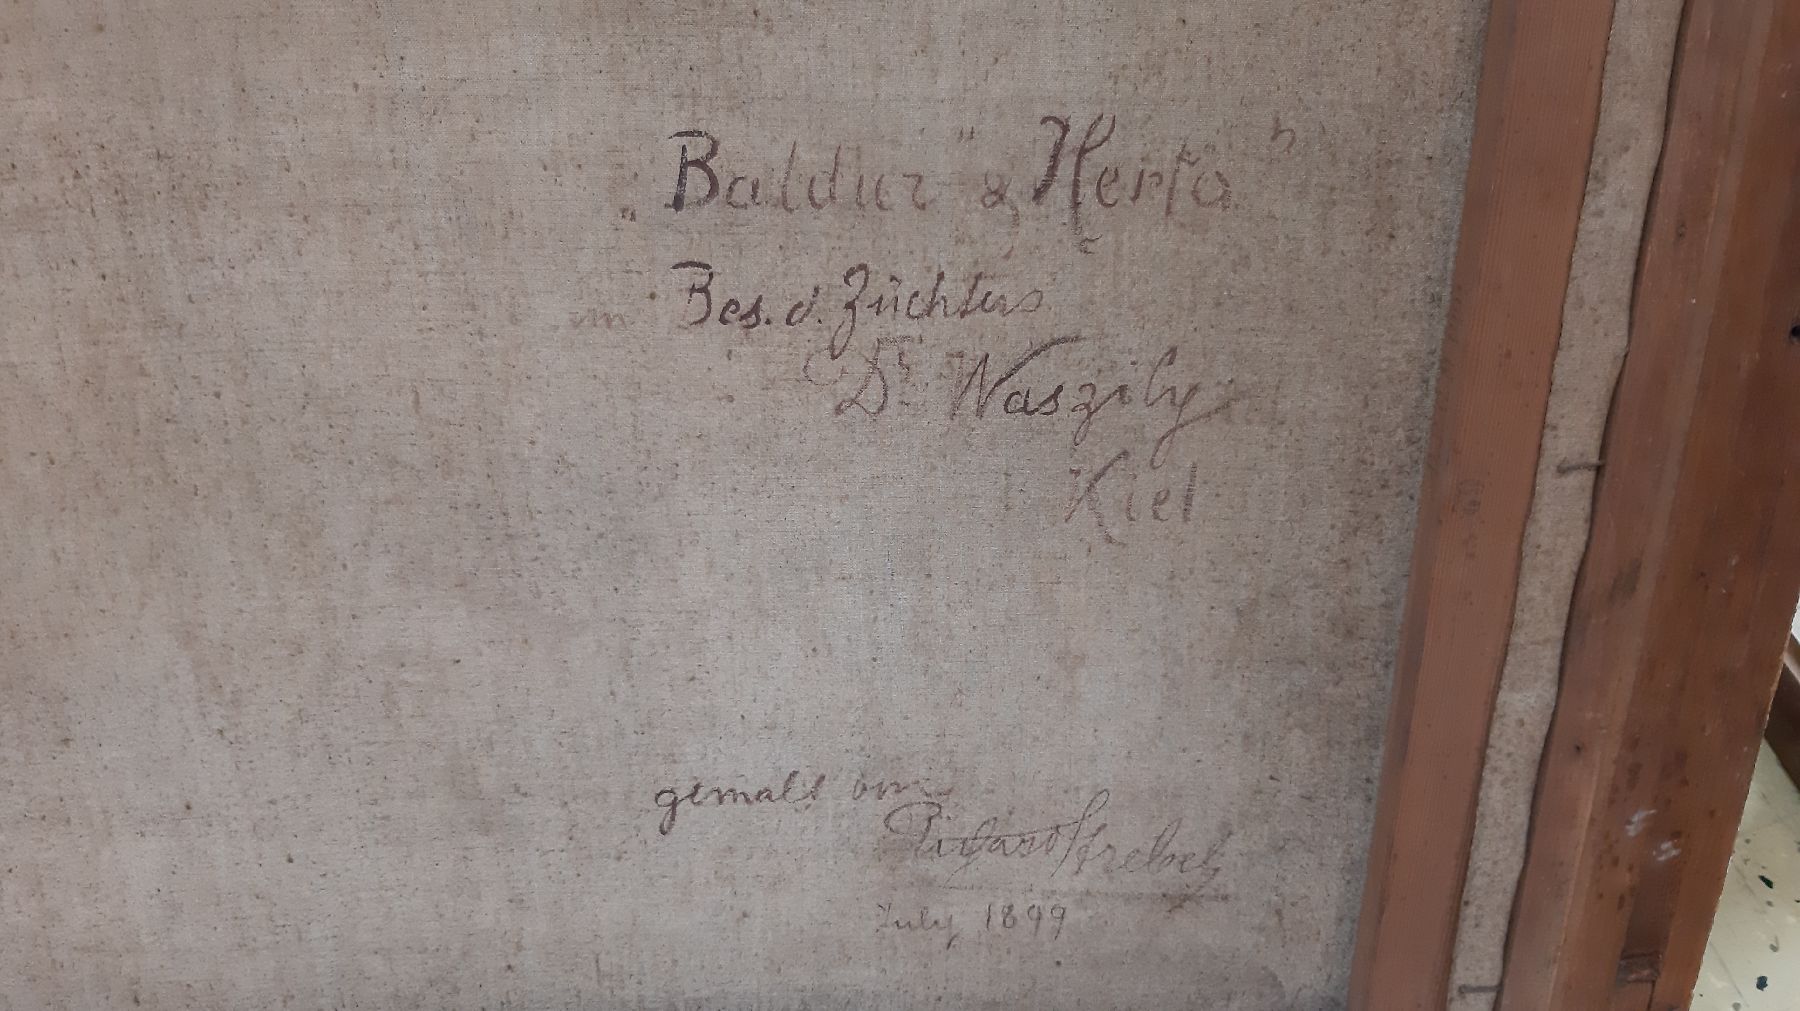 „Baldur“ & Herta“
im Bes. d. Züchters
Dr. Waszily
Kiel
gemalt von
Richard Strebel
July 1899